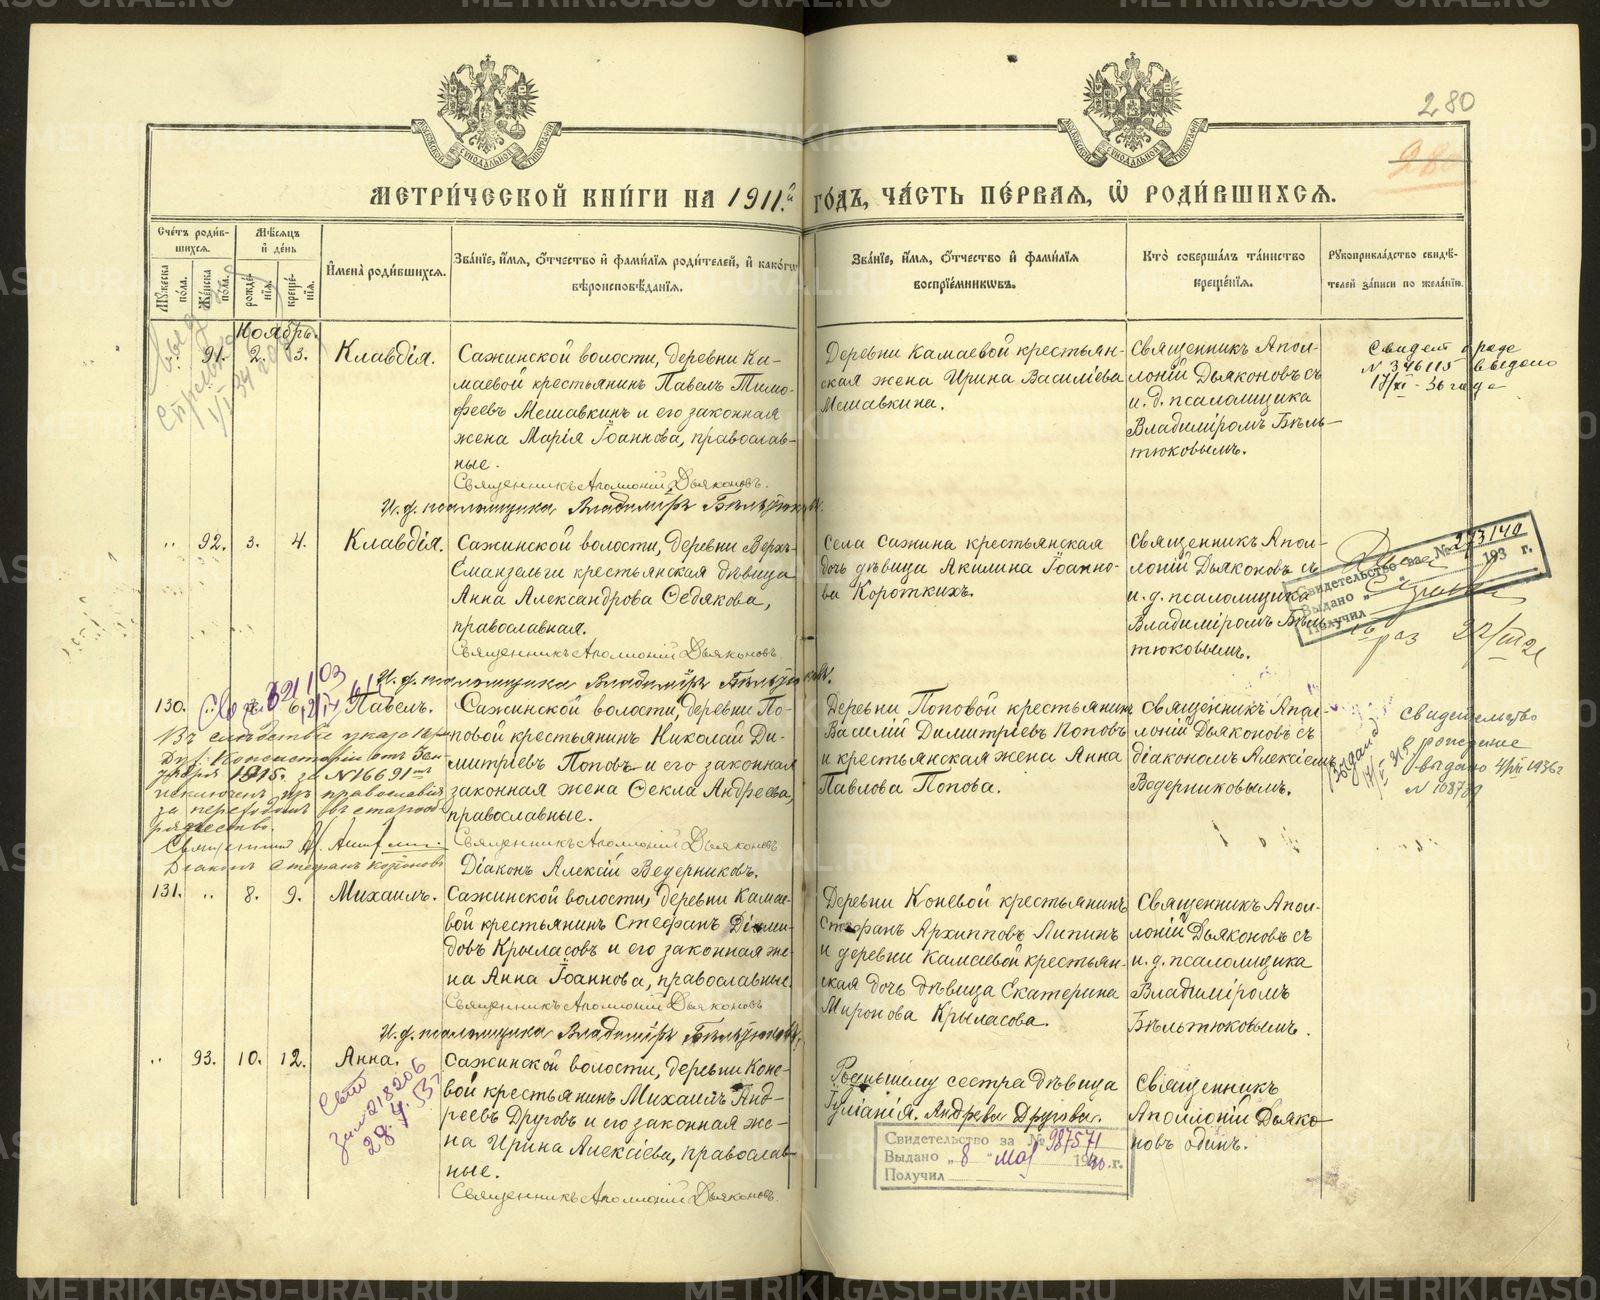 280
280
МЕТРИ́ЧЕСКОЙ КНИ́ГИ НА 1911.й ГО́ДЪ, ЧА́СТЬ ПЕ́РВАЯ, Ѽ РОДИ́ВШИХСЯ.
Сче́тъ роди́в-
шихся.
Мужеска по́ла.
Же́нска по́ла.
Мѣ́сяцъ
и҆ де́нь
рожде́-
нїя.
креще́-
нїя.
И҆мена̀ роди́вшихся.
Зва́нїе, и҆́мя, ѻ҆́тчество и҆ фами́лїя роди́телей, и҆ како́гѡ
вѣроисповѣ́данїя.
Зва́нїе, и҆́мя, ѻ҆́тчество и҆ фами́лїя
воспрїе́мникѡвъ.
Кто̀ соверша́лъ та́инство
креще́нїя.
Рукоприкла́дство свидѣ́-
телей за́писи по жела́нїю.
Ноябрь.
„ 91. 2. 3. Клавдія.
Сажинской волости, деревни Ка-
маевой крестьянинъ Павелъ Тимо-
феевъ Мешавкинъ и его законная
жена Марія Іоаннова, православ-
ные.
Священникъ Аполлоній Дьяконовъ.
И. д. псаломщика Владимиръ Бѣльтюковъ.
Деревни Камаевой крестьян-
ская жена Ирина Василіева
Мешавкина.
Священникъ Апол-
лоній Дьяконовъ съ
и. д. псаломщика
Владиміромъ Бѣль-
тюковымъ.
Свидет о рож
N 346115 выдано
17/XI - 36 года
„ 92. 3. 4. Клавдія.
Сажинской волости, деревни Верхъ-
Сманзельги крестьянская дѣвица
Анна Александрова Ѳедякова,
православная.
Священникъ Аполлоній Дьяконовъ
И. д. псаломщика Владимиръ Бѣльтюковъ.
Села Сажина крестьянская
дочь дѣвица Акилина Іоанно-
ва Коротких.
Священникъ Апол-
лоній Дьяконовъ съ
и. д. псаломщика
Владиміромъ Бѣль-
тюковымъ.
Свидетельство за №
193 г.
Выдано „
Получил
130. „ 6. Павелъ.
Сажинской волости, деревни По-
повой крестьянинъ Николай Ди-
митріевъ Поповъ и его законная
законная жена Ѳекла Андреева,
православные.
Священникъ Аполлоній Дьяконовъ
Діаконъ Алексій Ведерниковъ.
Въ слѣдствіе указа
Дух. Консисторіи отъ
1915 г. за N 16691
исключенъ изъ православія
за переходомъ въ старооб-
рядчество.
Священникъ
Діаконъ Стефанъ
Деревни Поповой крестьянинъ
Василій Димитріевъ Поповъ
и крестьянская жена Анна
Павлова Попова.
Священникъ Апол-
лоній Дьяконовъ съ
діакономъ Алексіемъ
Ведерниковымъ.
Свидетельство
о рождение
выдано 1936г
131. „ 8. 9. Михаилъ.
Сажинской волости, деревни Камае-
вой крестьянинъ Стефанъ Діоми-
довъ Крыласовъ и его законная же-
на Анна Іоаннова, православные.
Священникъ Аполлоній Дьяконовъ
И. д. псаломщика Владимиръ Бѣльтюковъ.
Деревни Коневой крестьянинъ
Стефанъ Архипповъ Липинъ
и деревни Камаевой крестьян-
ская дочь дѣвица Екатерина
Миронова Крыласова.
Священникъ Апол-
лоній Дьяконовъ съ
и. д. псаломщика
Владиміромъ
Бѣльтюковымъ.
„ 93. 10. 12. Анна.
Сажинской волости, деревни Коне-
вой крестьянинъ Михаилъ Анд-
реевъ Друговъ и его законная же-
на Ирина Алексіева, православ-
ные.
Священникъ Аполлоній Дьяконовъ.
Роднышему сестра дѣвица
Іуліанія Андреева Другова.
Священникъ
Аполлоній Дьяко-
новъ одинъ.
Свидетельство за № 987571
Выдано „8“ мая 1940 г.
Получил
METRIKI.GASO-URAL.RU